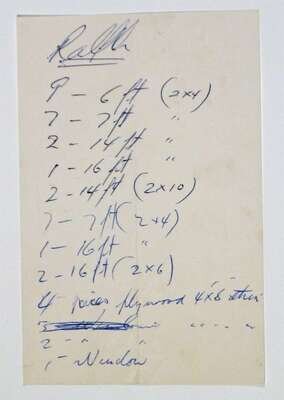 Ralph
9 - 6 ft (2x4)
7 - 7 ft "
2 - 14 ft "
1 - 16 ft "
2 - 14 ft (2x10)
7 - 7 ft (2x4)
1 - 16 ft "
2 - 16 ft (2x6)
4 pieces plywood 4'x8'
2 - " "
1 - Window